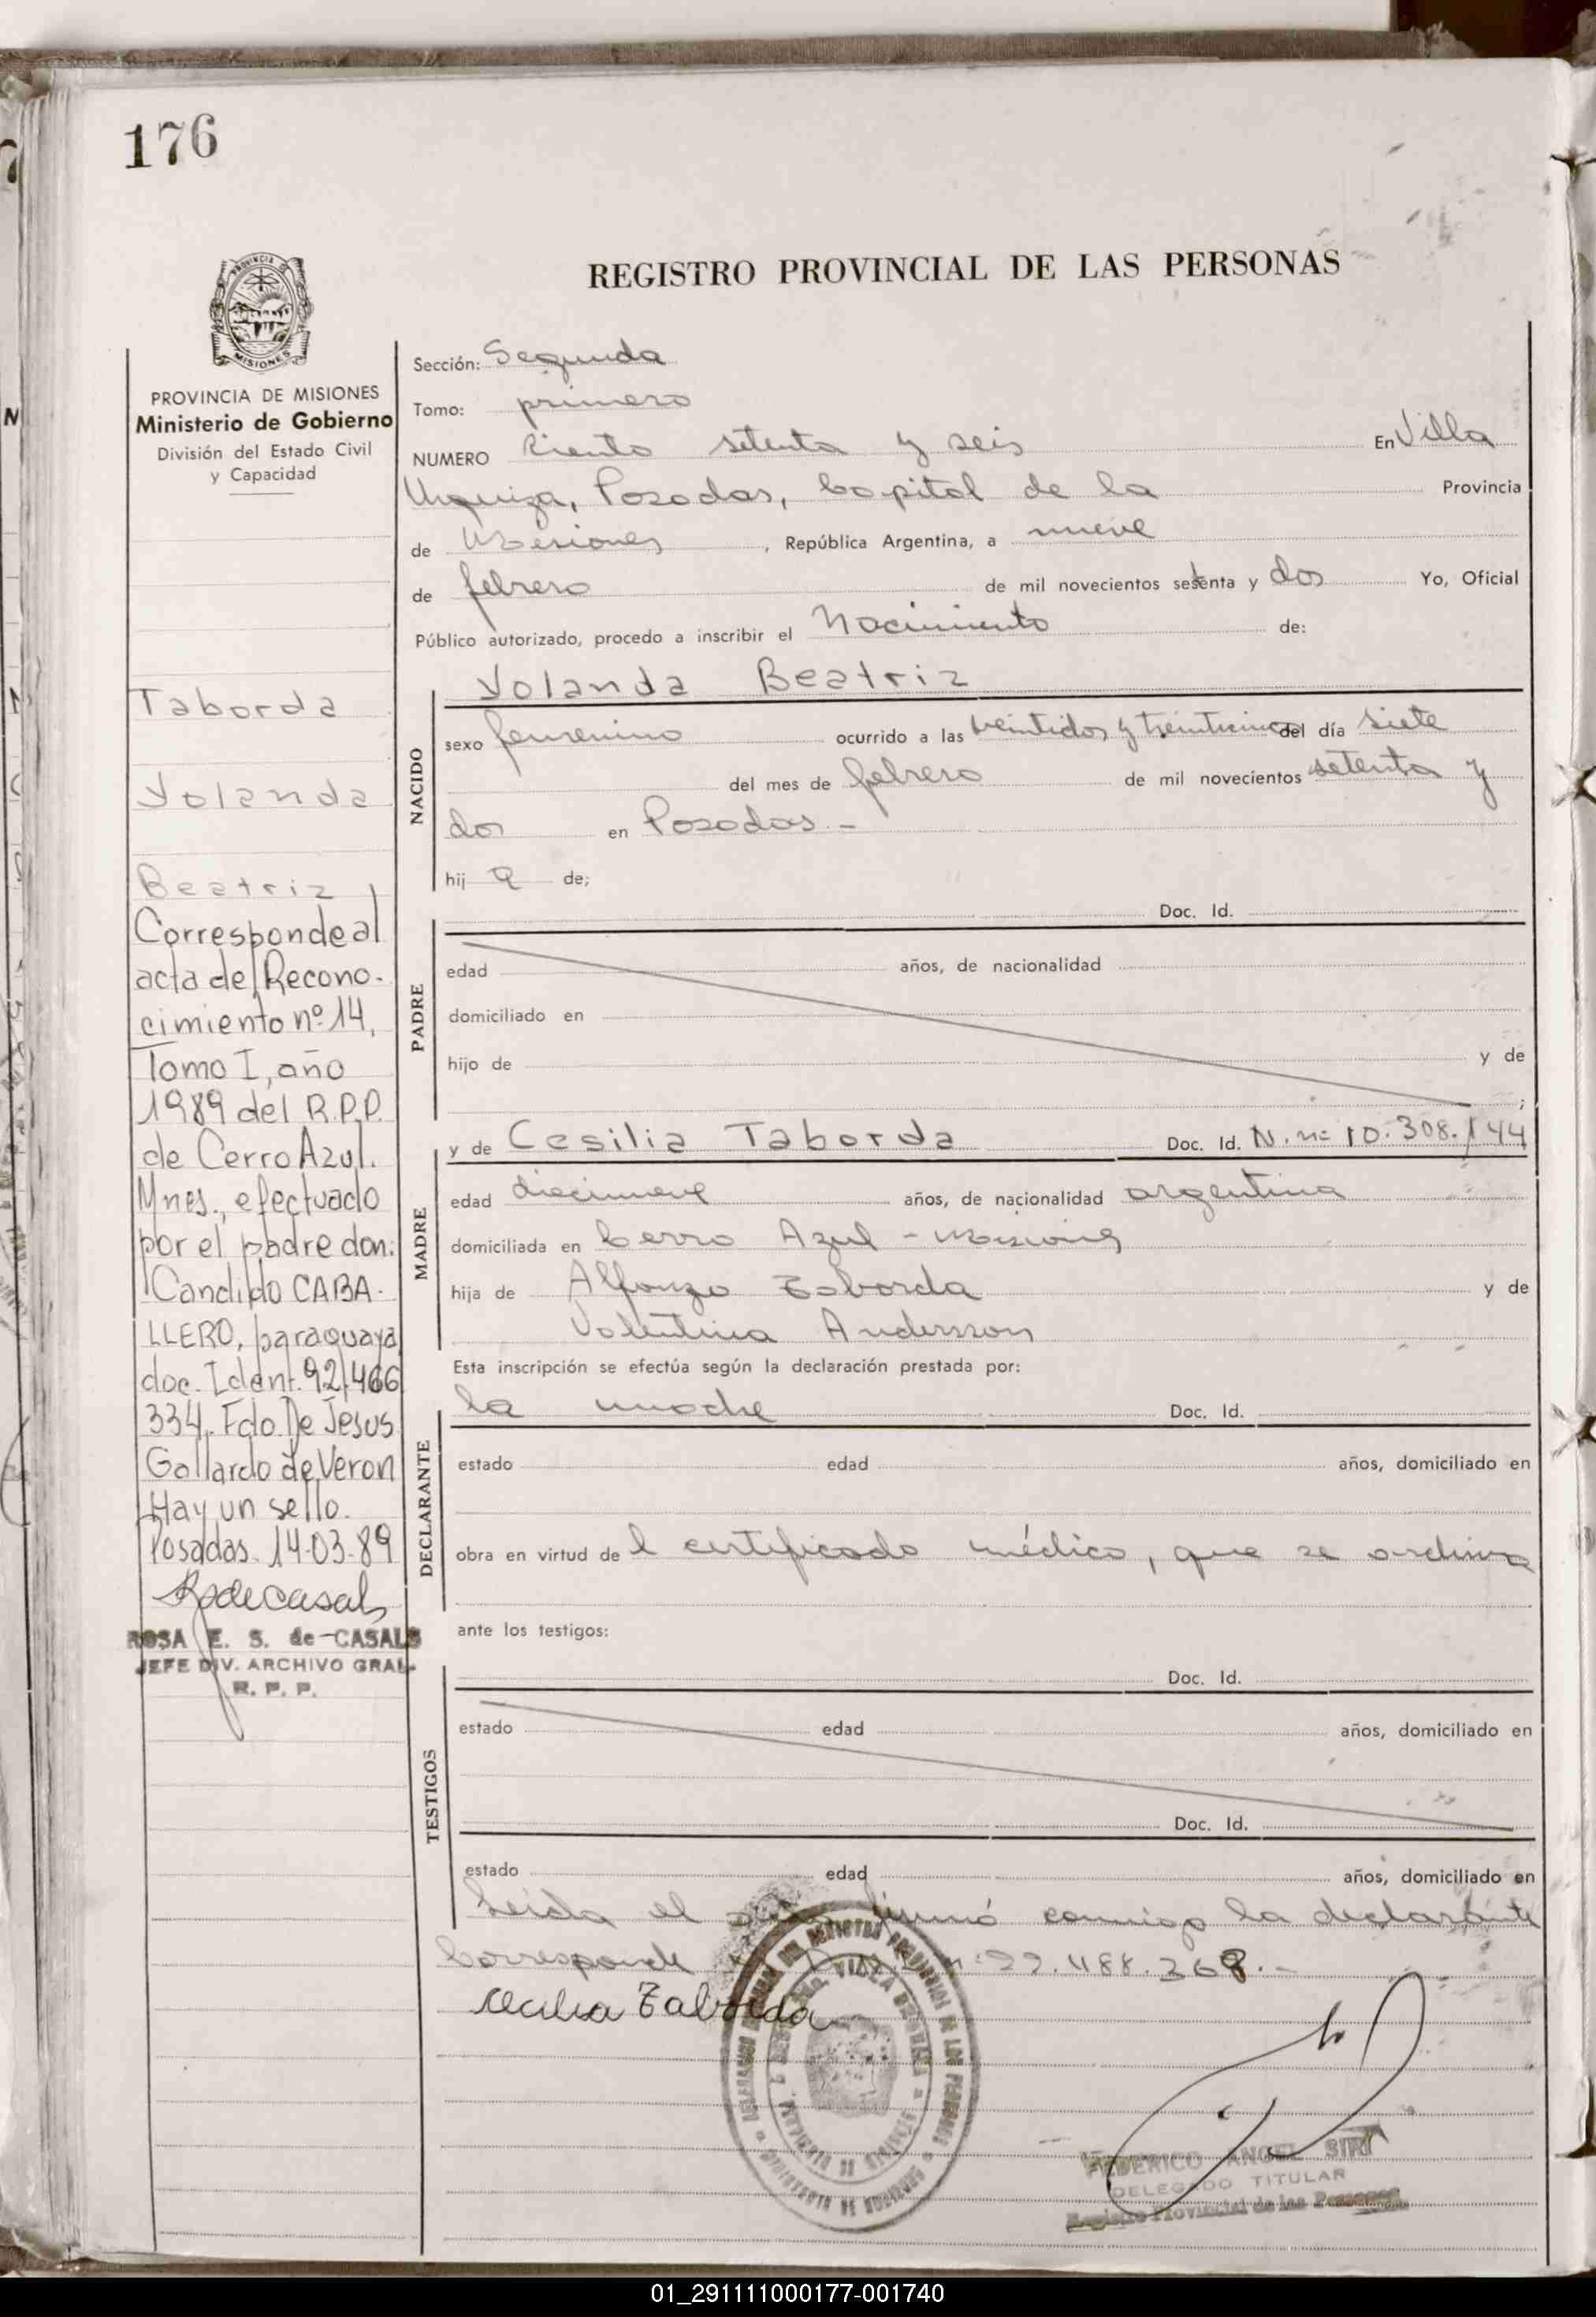 176
PROVINCIA DE
MISIONES
REGISTRO PROVINCIAL DE LAS PERSONAS
PROVINCIA DE MISIONES
Ministerio de Gobierno
División del Estado Civil
y Capacidad
Taborda
Yolanda
Beatriz
Corresponde al
acta de Recono-
cimiento nº 14,
Tomo I, año
1989 del R.P.P.
de Cerro Azul.
Mnes., efectuado
por el padre don:
Candido CABA-
LLERO, paraguaya
doc. Ident. 92.466
334. Fdo. De Jesus
Gallardo de Veron
Hay un sello.
Posadas 14-03-89
ROSA E. S. de CASALS
JEFE DIV. ARCHIVO GRAL.
R. P. P.
Sección: Segunda
Tomo: primero
NUMERO Ciento setenta y seis En Villa
Urquiza, Posadas, Capital de la Provincia
de Misiones, República Argentina, a nueve
de febrero de mil novecientos setenta y dos Yo, Oficial
Público autorizado, procedo a inscribir el Nacimiento de:
NACIDO
Yolanda Beatriz
sexo femenino ocurrido a las veintidos y treinticinco del día siete
del mes de febrero de mil novecientos setenta y
dos en Posadas.-
hija de;
PADRE
Doc. Id.
edad años, de nacionalidad
domiciliado en
hijo de y de
;
MADRE
y de Cesilia Taborda Doc. Id. N. nº 10.308.144
edad diecinueve años, de nacionalidad argentina
domiciliada en Cerro Azul - Misiones
hija de Alfonzo Taborda y de
Valentina Andersson
Esta inscripción se efectúa según la declaración prestada por:
DECLARANTE
la madre Doc. Id.
estado edad años, domiciliado en
obra en virtud del certificado médico, que se archiva
ante los testigos:
TESTIGOS
Doc. Id.
estado edad años, domiciliado en
Doc. Id.
estado edad años, domiciliado en
Leida el acta firmó conmigo la declarante
Corresponde 22.488.368.-
Cecilia Taborda
FEDERICO ANGEL SIRI
DELEGADO TITULAR
Registro Provincial de las Personas
01_291111000177-001740